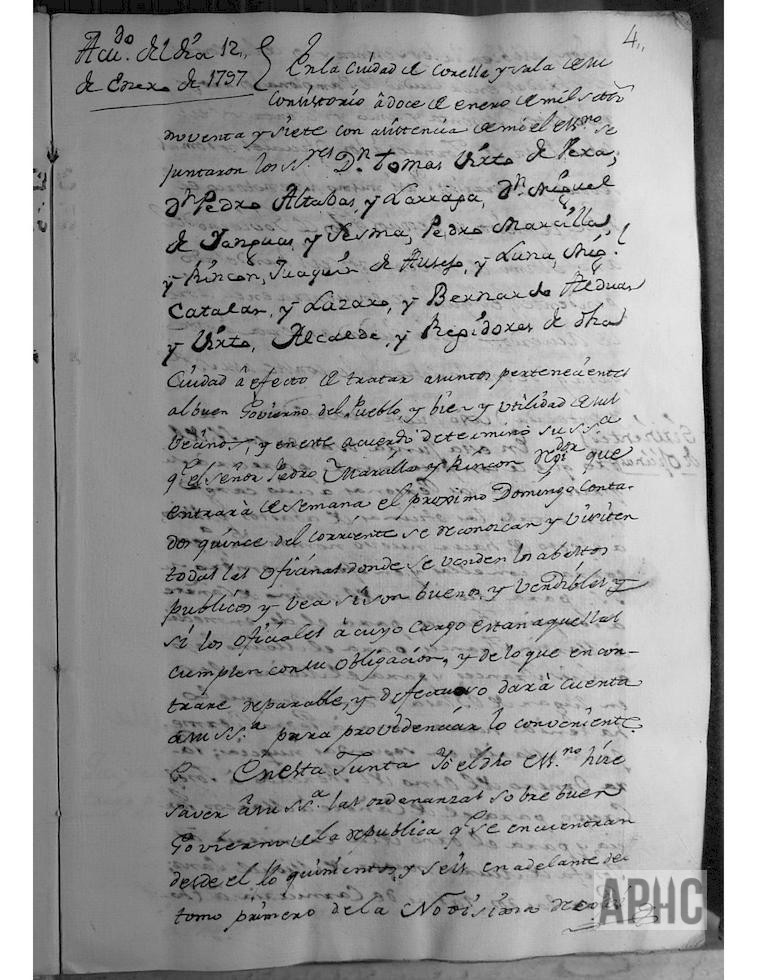 4,,
Acu.do del dia 12,,
de Enero de 1797
En la Ciudad de Corella y sala de su
Consistorio â doce de enero de mil setts
noventa y siete con asistencia de mi el Ess.no se
juntaron los SS.res Dn. tomas Virto de Vera,
Dn. Pedro Altabas, y Larraga, Dn. Miguel
de Yanguas, y Sesma, Pedro Marcilla,
y Rincon, Juaquin de Ausejo, y Luna, Mig.l
Catalan, y Lazaro, y Bernardo Alduan
y Virto, Alcalde, y Regidores de dha
Ciudad â efecto de tratar asuntos pertenecientes
al buen Govierno del Pueblo, y bien y utilidad de sus
vecinos, y en este acuerdo determinò su S.S.a
q.e el señor Pedro Marcilla y Rincon Rgi.dor que
entrarà de semana el proximo Domingo conta-
dos quince del corriente se deconozcan y visiten
todas las oficinas donde se venden los abastos
publicos y vea si son buenos, y vendibles y
si los oficiales à cuyo cargo estan aquellas
cumplen con su obligacion, y de lo que encon-
trare reparable, y defectuoso darà cuenta
à su SS.a para providenciar lo conveniente
En esta Junta Yo el dho Ess.no hize
saver â su SS.a las ordenanzas sobre buen
Govierno de la republica q.e se encuentran
desde el fo quinientos y seis en adelante de
tomo primero de la Novisima
APHC